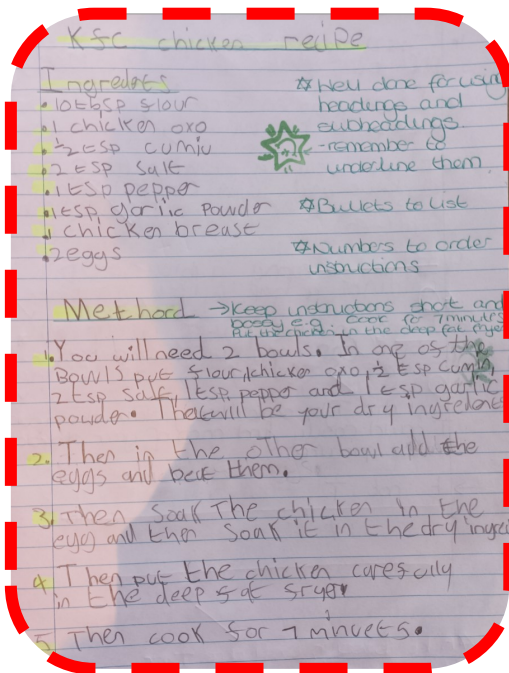 Kfc chicken recipe
Ingredets
• 10tbsp flour
• 1 chicken oxo
• ½ tsp cumiu
• 2 tsp salt
• 1tsp pepper
• 1tsp garlic Powder
• 1 chicken breast
• 2eggs
☆ Well done for using
headings and
subheadings.
-remember to
underline them.
☆ Bullets to list
☆ Numbers to order
instructions
Methord
→ Keep instructions short and
bossy e.g. cook for 7 minutes
Put the chicken in the deep fat fryer
1. You will need 2 bowls. In one of the
Bowls put flour, chicken oxo, ½ tsp cumin,
2 tsp salt, 1tsp pepper and 1 tsp garlic
powder. will be your dry
2. Then in the other bowl add the
eggs and beat them.
3. Then Soak The chicken in the
egg and then Soak it in the dry
4. Then put the chicken
in the deep fat fryer
5. Then cook for 7 minuets.